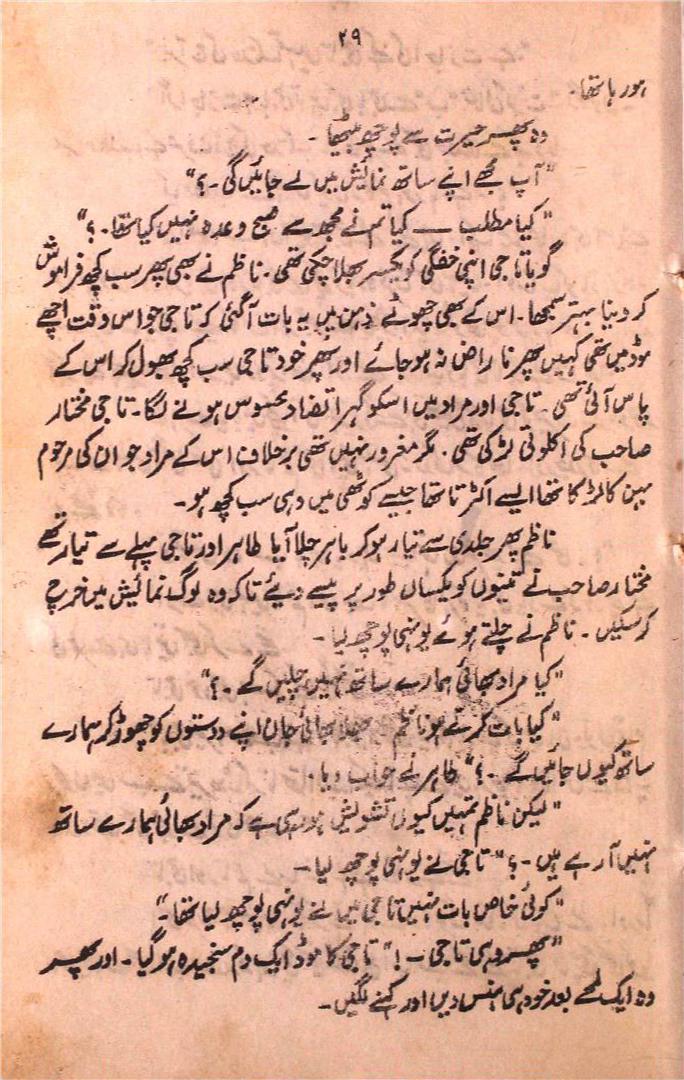 ۲۹
ہو رہا تھا۔
وہ پھر حیرت سے پوچھ بیٹھا۔
"آپ مجھے اپنے ساتھ نمائش میں لے جائیں گی۔؟"
"کیا مطلب —— کیا تم نے مجھ سے صبح وعدہ نہیں کیا تھا۔؟"
گویا تاجی اپنی خفگی کو یکسر بھلا چکی تھی۔ ناظم نے بھی پھر سب کچھ فراموش
کر دینا بہتر سمجھا۔ اس کے بھی چھوٹے ذہن میں یہ بات آ گئی کہ تاجی جو اس وقت اچھے
موڈ میں تھی کہیں پھر ناراض نہ ہو جائے اور پھر خود تاجی سب کچھ بھول کر اس کے
پاس آئی تھی۔ تاجی اور مراد میں اسکو گہرا تضاد محسوس ہونے لگا۔ تاجی مختار
صاحب کی اکلوتی لڑکی تھی۔ مگر مغرور نہیں تھی برخلاف اس کے مراد جو ان کی مرحوم
بہن کا لڑکا تھا ایسے اکڑتا تھا جیسے کوٹھی میں وہی سب کچھ ہو۔
ناظم پھر جلدی سے تیار ہو کر باہر چلا آیا طاہر اور تاجی پہلے سے تیار تھے
مختار صاحب نے تینوں کو یکساں طور پر پیسے دیئے تاکہ وہ لوگ نمائش میں خرچ
کر سکیں۔ ناظم نے چلتے ہوئے یونہی پوچھ لیا۔
"کیا مراد بھائی ہمارے ساتھ نہیں چلیں گے۔؟"
"کیا بات کرتے ہو ناظم۔ بھلا بھائی جان اپنے دوستوں کو چھوڑ کر ہمارے
ساتھ کیوں جائیں گے۔؟" طاہر نے جواب دیا۔
"لیکن ناظم تمہیں کیوں تشویش ہو رہی ہے کہ مراد بھائی ہمارے ساتھ
نہیں آ رہے ہیں۔؟" تاجی نے یونہی پوچھ لیا۔
"کوئی خاص بات نہیں تاجی میں نے یونہی پوچھ لیا تھا۔"
"پھر وہی تاجی۔!" تاجی کا موڈ ایک دم سنجیدہ ہو گیا۔ اور پھر
وہ ایک لمحے بعد خود ہی ہنس دیں اور کہنے لگیں۔